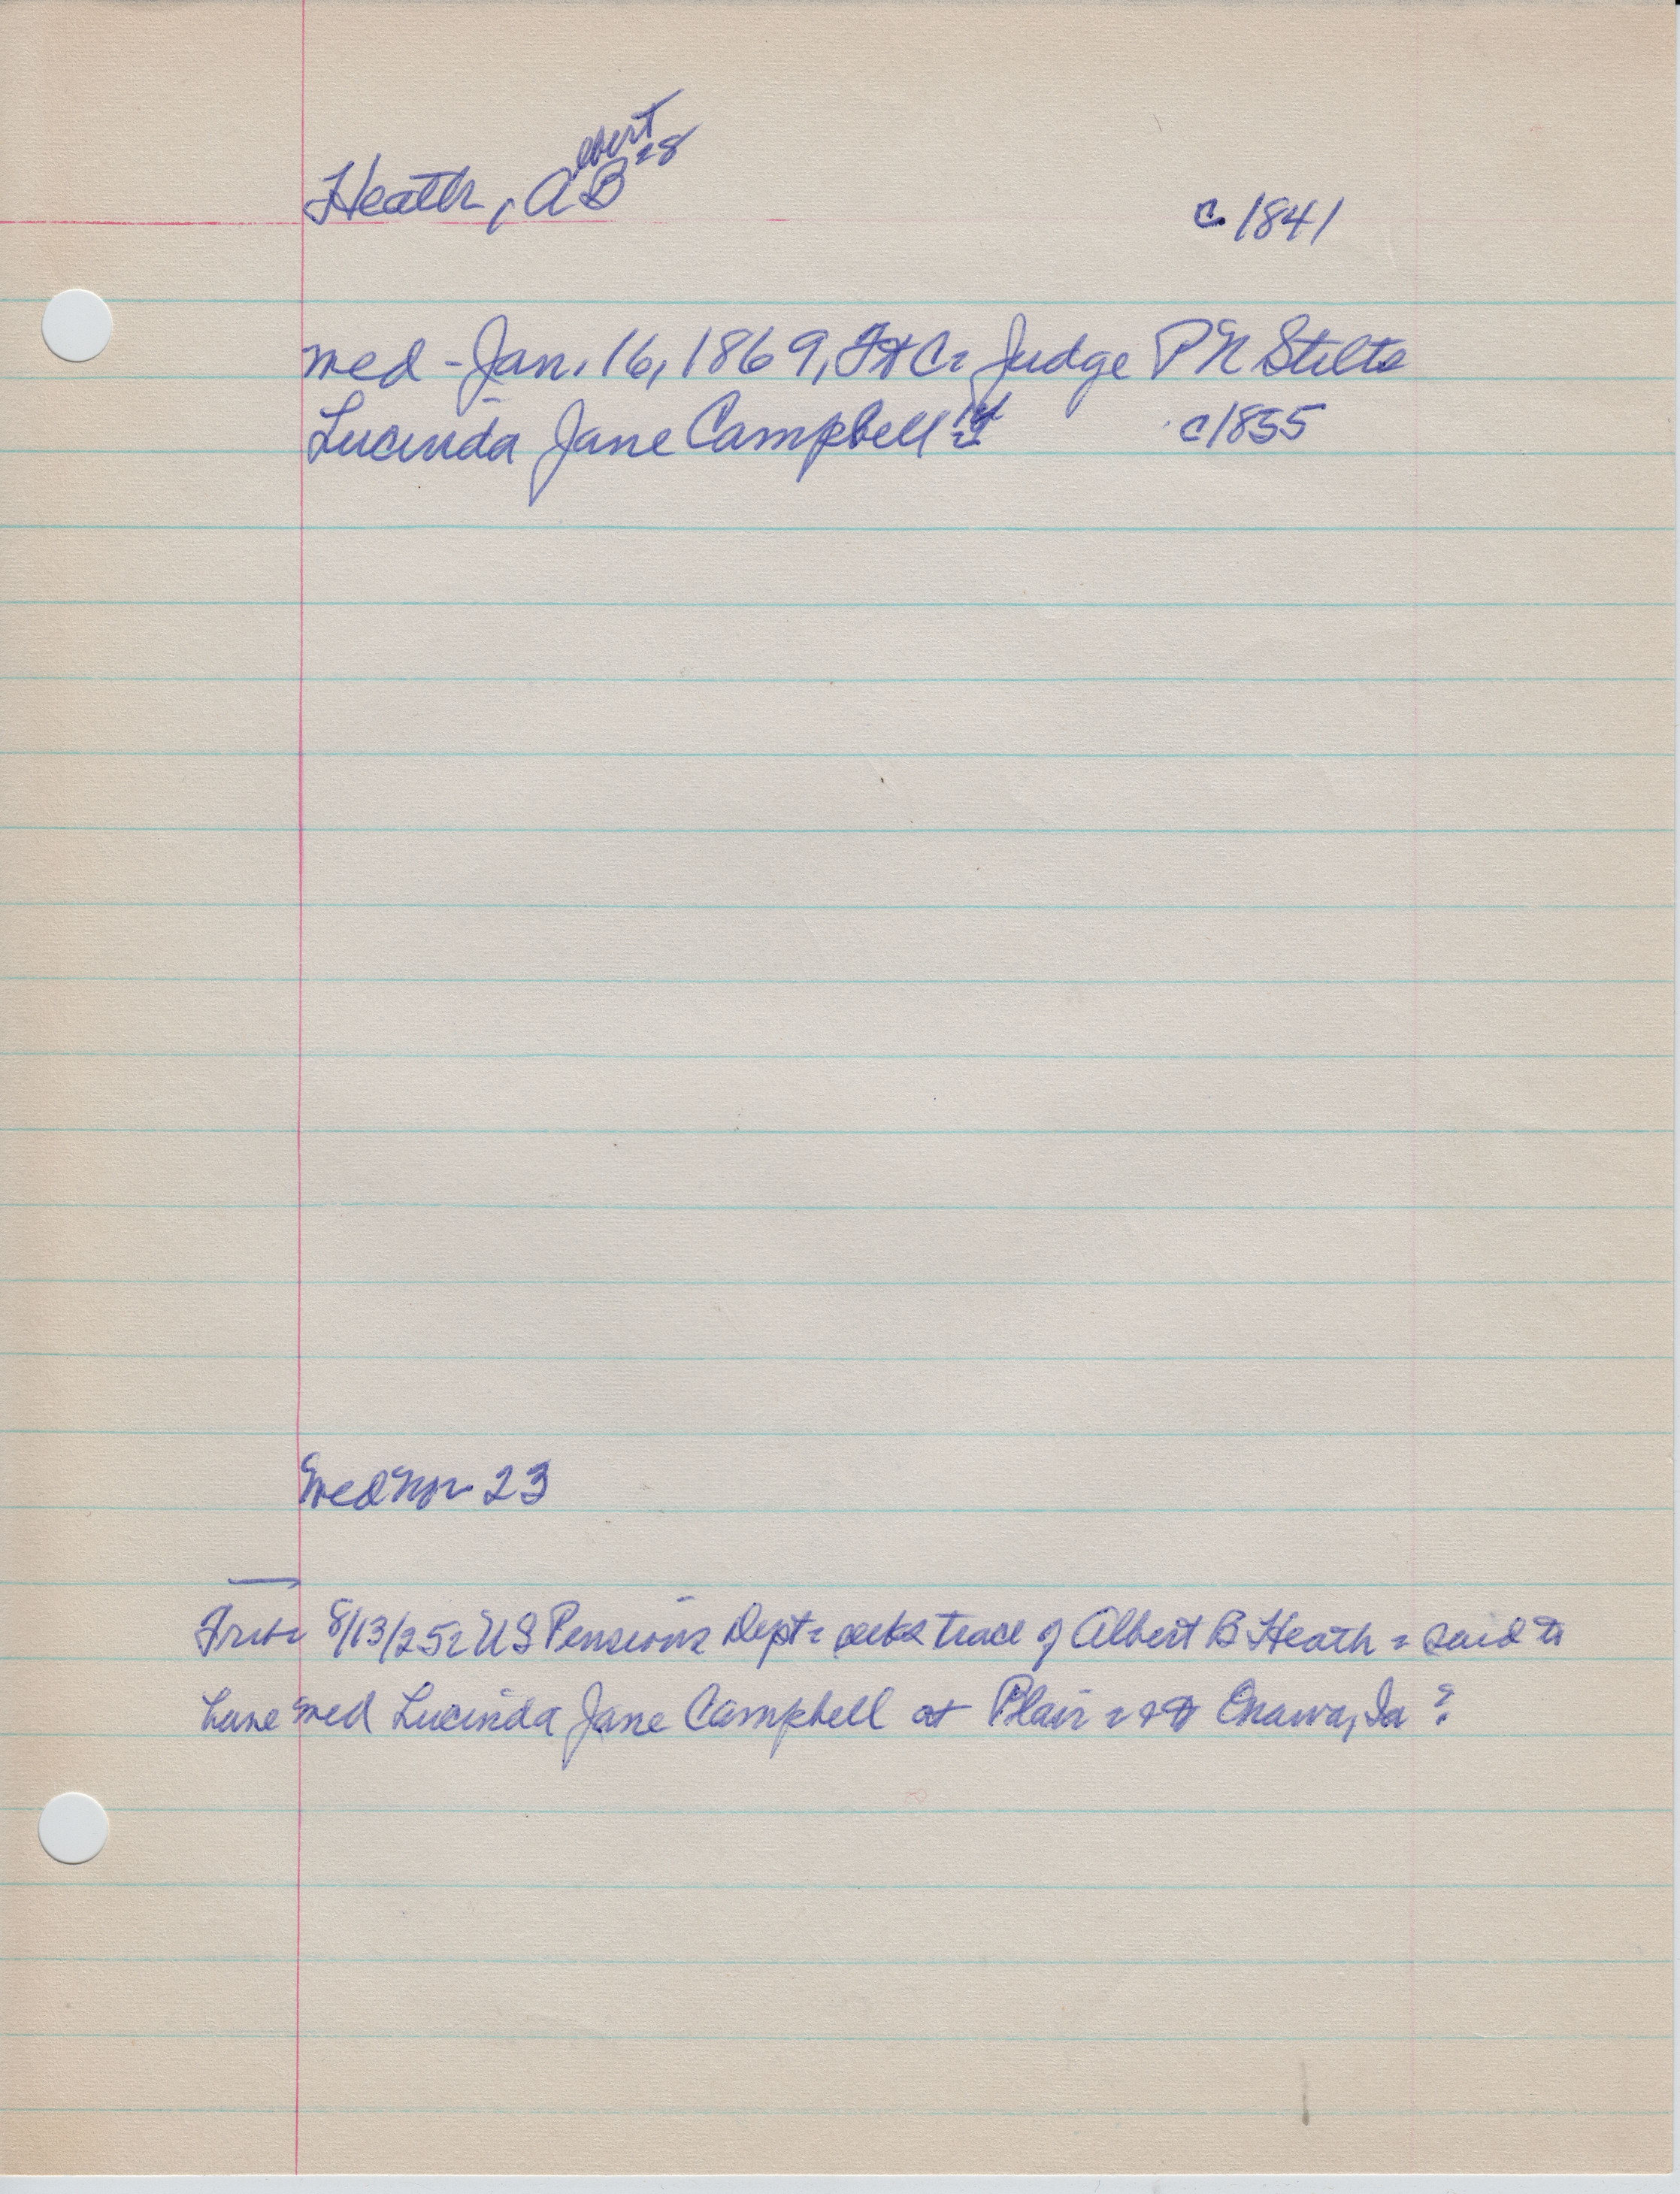 Heath, Albert B 28 c 1841
med - Jan. 16, 1869, Ft C: Judge P N Stilts
Lucinda Jane Campbell 14 c1855
Med Nov 23
Trib: 8/13/25: US Pensions Dept: seeks trace of Albert B Heath: said to
have med Lucinda Jane Campbell at Blair : Onawa, Ia ?